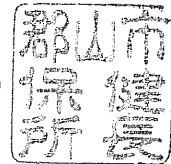 郡山市
保健
所長